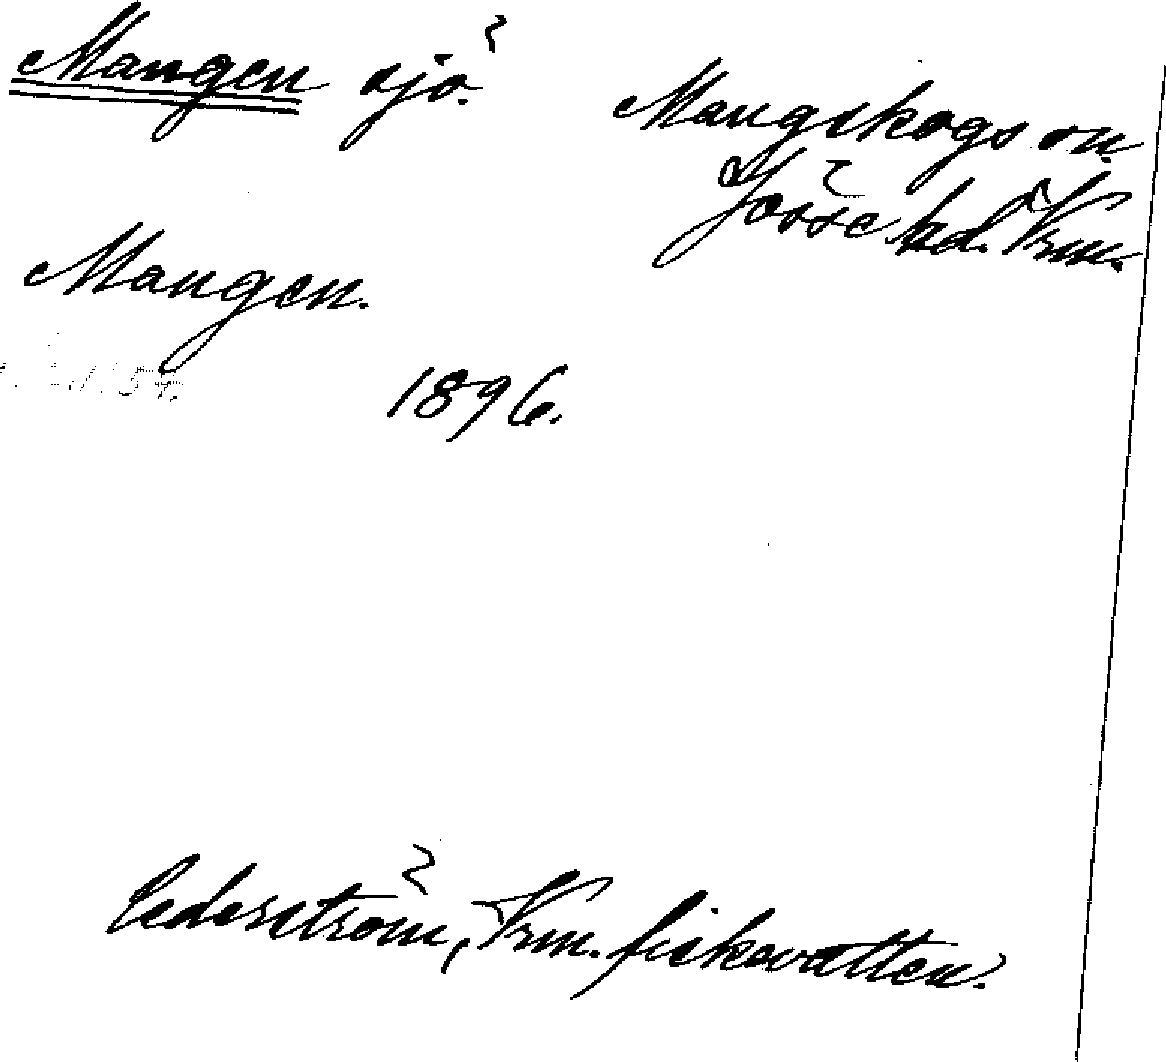 Mangen sjö.
Mangskogs sn.
Jösse hd. Vrm.
Mangen.
1896.
Cederström, Vrm. fiskevatten.